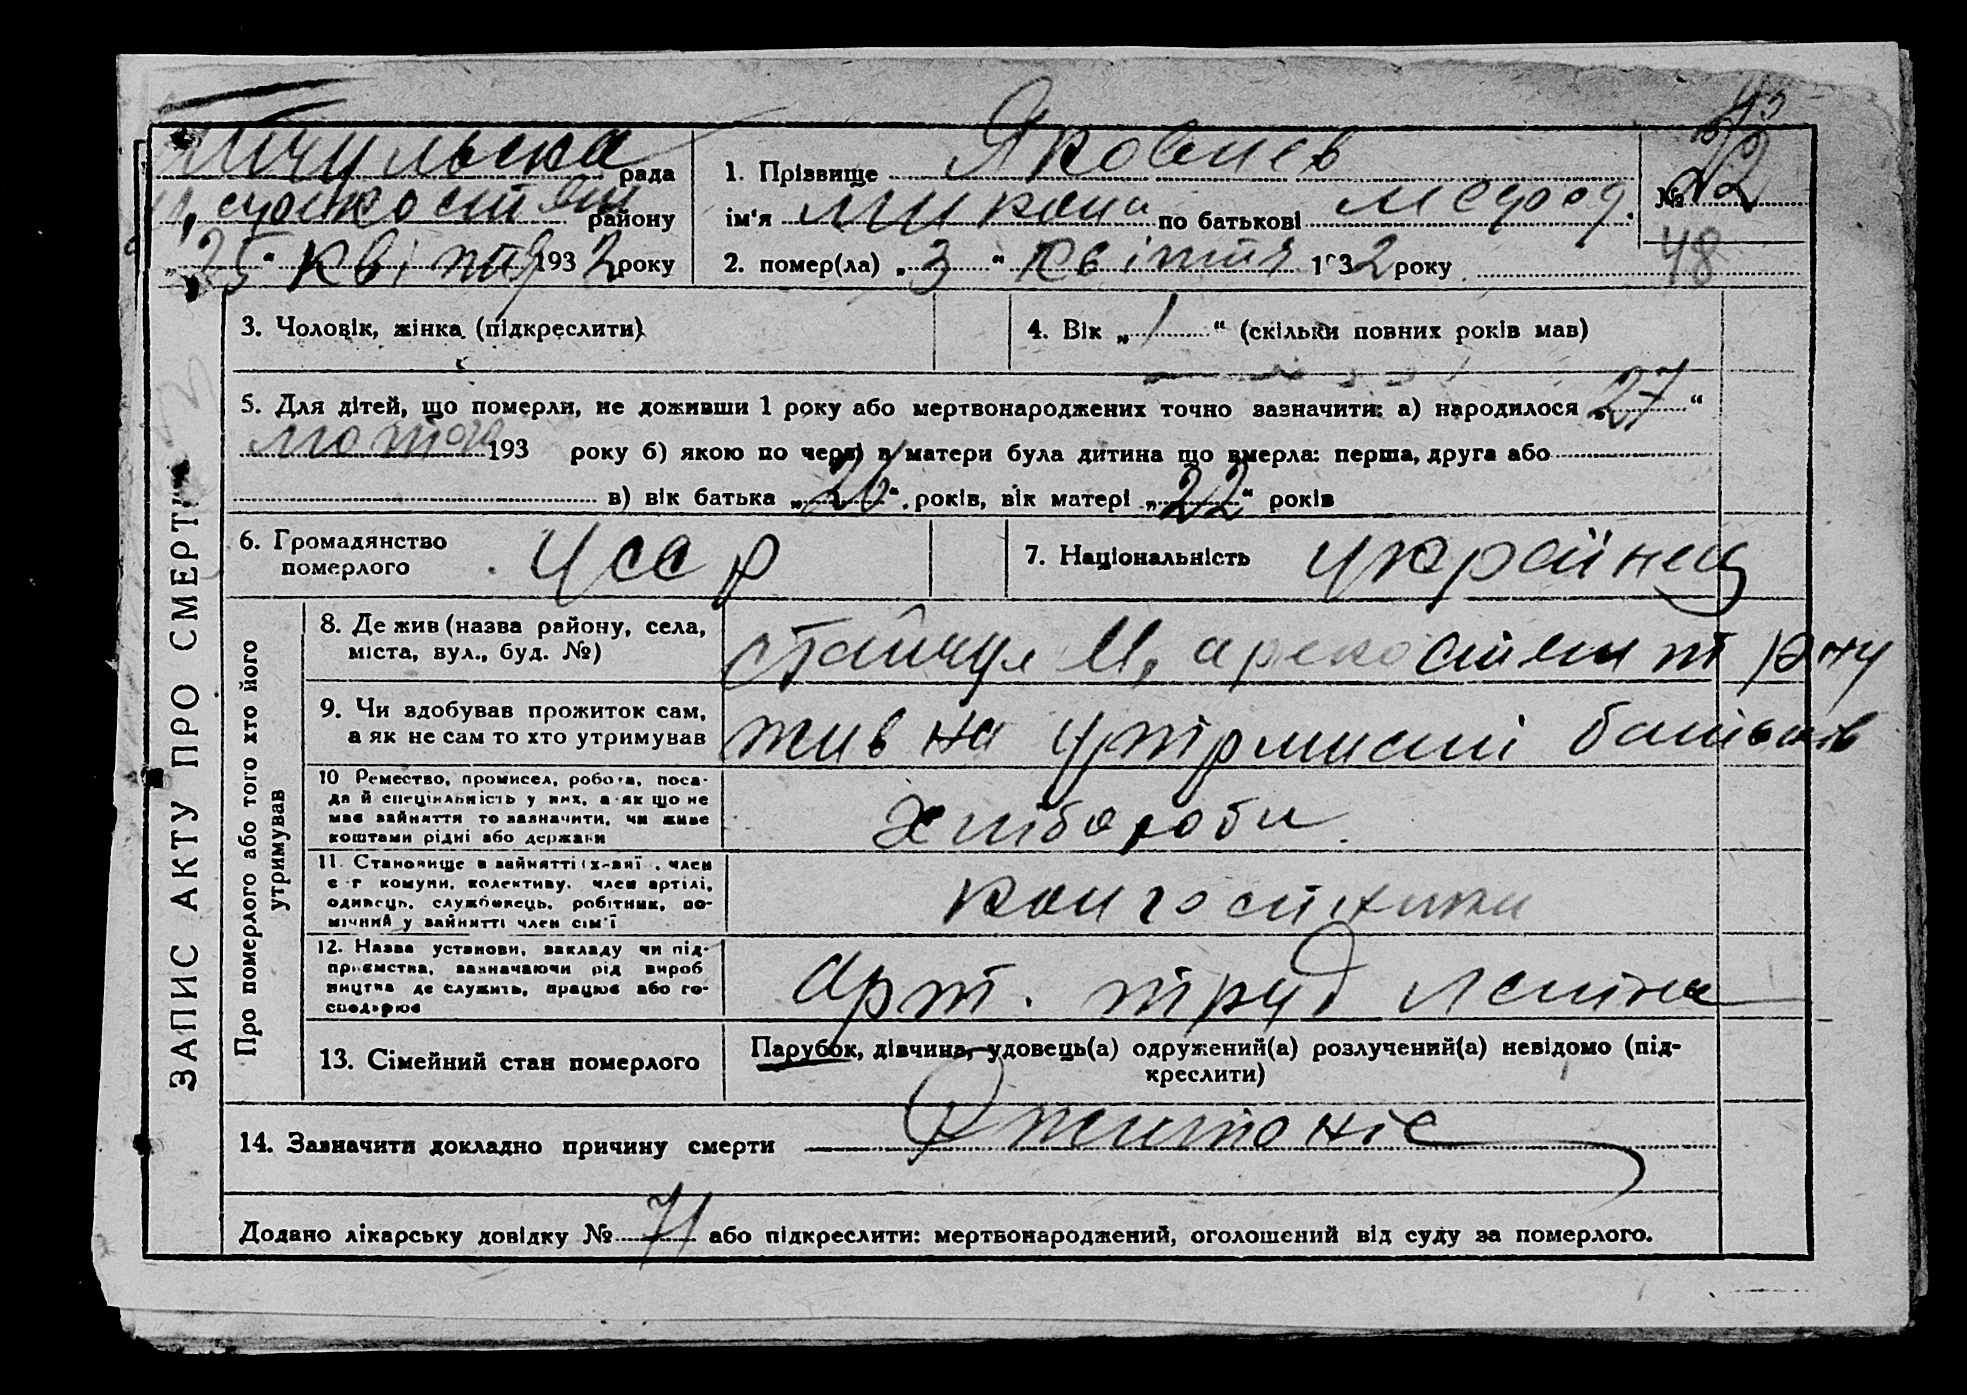 рада
району
„25“ квітня 1932 року
1. Прізвище Яковлев
ім'я по батькові
2. помер(ла) „3“ квітня 1932 року
№ 22
48
3. Чоловік, жінка (підкреслити)
4. Вік „1“ (скільки повних років мав)
5. Для дітей, що померли, не доживши 1 року або мертвонароджених точно зазначити: а) народилося „27“
лютого 193 року б) якою по черзі в матери була дитина що вмерла: перша, друга або
в) вік батька „26“ років, вік матері „22“ років
6. Громадянство
померлого
УССР
7. Національність українец
ЗАПИС АКТУ ПРО СМЕРТЬ
Про померлого або того хто його
утримував
8. Де жив (назва району, села,
міста, вул., буд. №)
9. Чи здобував прожиток сам,
а як не сам то хто утримував
жив на утрмиані батьків
10 Ремество, промисел, робота, поса-
да й спеціяльність у них, а як що не
має зайняття то зазначити, чи живе
коштами рідні або держави
хлібороби.
11. Становище в зайнятті (х-зяї , член
с-г комуни, колективу, член артілі,
одинець, службовець, робітник, по-
мічний у зайнятті член сім'ї
колгоспники
12. Назва установи, закладу чи під-
приємства, зазначаючи рід вироб
ництва де служить, працює або го-
сподарює
Арт. труд Леніна
13. Сімейний стан померлого
Парубок, дівчина, удовець(а) одружений(а) розлучений(а) невідомо (під-
креслити)
14. Зазначити докладно причину смерти
Додано лікарську довідку № 71 або підкреслити: мертвонароджений, оголошений від суду за померлого.